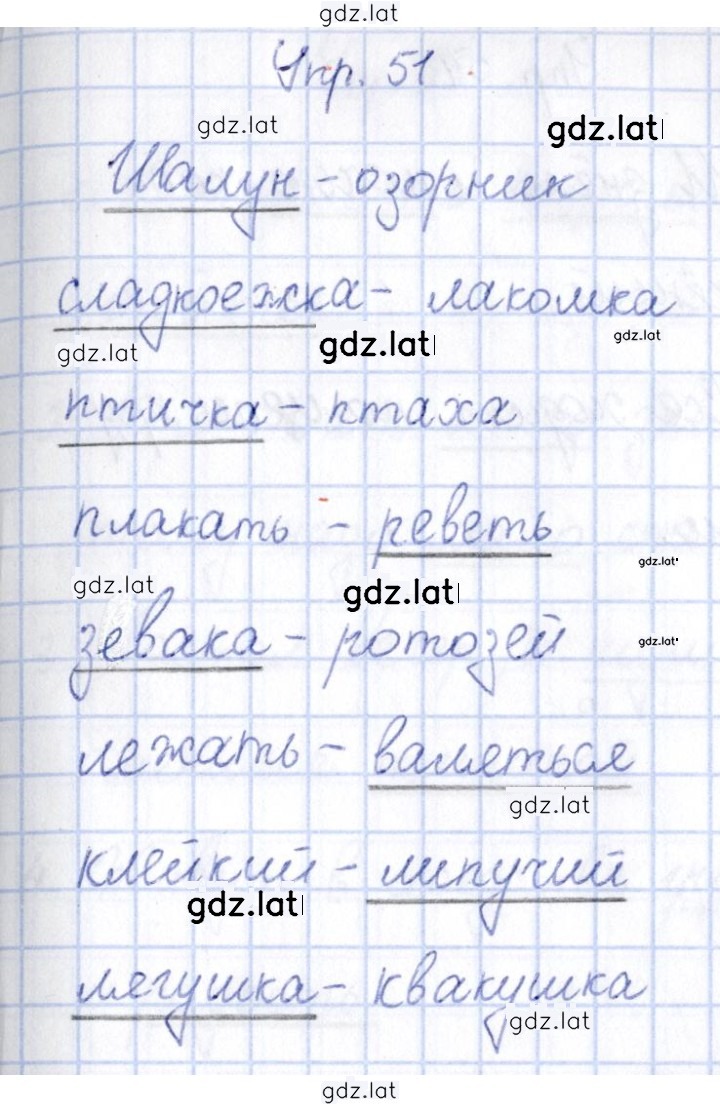 gdz.lat
Упр. 51
gdz.lat gdz.lat
Шалун - озорник
сладкоежка - лакомка
gdz.lat gdz.lat gdz.lat
птичка - птаха
плакать - реветь
gdz.lat gdz.lat gdz.lat
зевака - ротозей
gdz.lat
лежать - валяться
gdz.lat
клейкий - липучий
gdz.lat
лягушка - квакушка
gdz.lat
gdz.lat